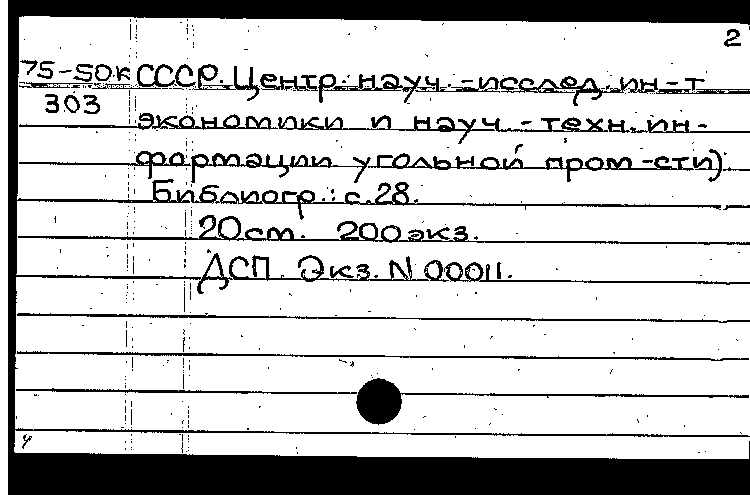 2
75-50к СССР. Центр. науч.-исслед. ин-т
303
экономики и науч.-техн. ин-
формации угольной пром-сти)
Библиогр.: с.28.
20 см. 200 экз.
ДСП. Экз. N 00011.